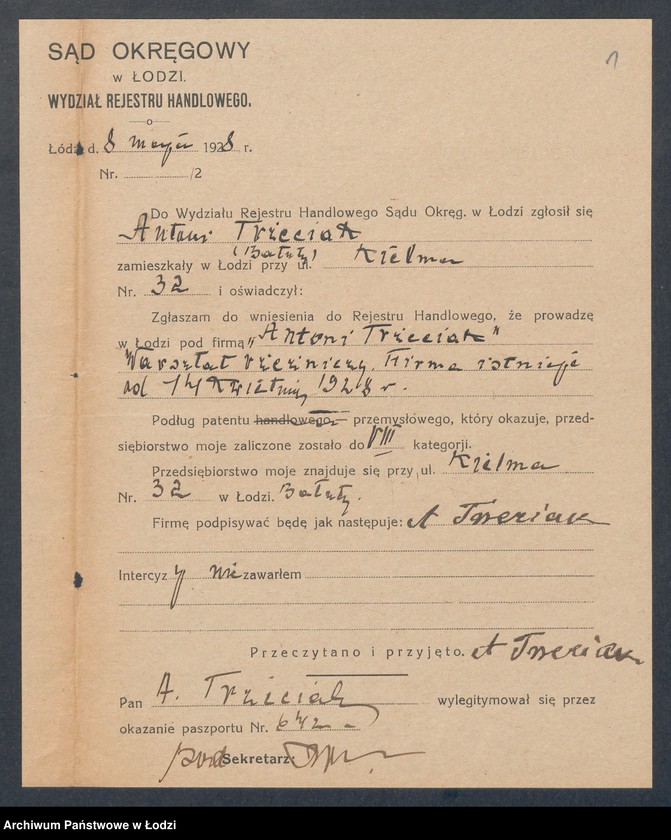 SĄD OKRĘGOWY
w ŁODZI.
WYDZIAŁ REJESTRU HANDLOWEGO.
1
Łódź d. 8 maja 1928 r.
Nr. /2
Do Wydziału Rejestru Handlowego Sądu Okręg. w Łodzi zgłosił się
Antoni Trzeciak
zamieszkały w Łodzi przy ul. (Bałuty) Kielma
Nr. 32 i oświadczył:
Zgłaszam do wniesienia do Rejestru Handlowego, że prowadzę
w Łodzi pod firmą „Antoni Trzeciak"
Warsztat rzeźniczy. Firma istnieje
od 14 kwietnia 1928 r.
Podług patentu handlowego, przemysłowego, który okazuje, przed-
siębiorstwo moje zaliczone zostało do VIII kategorji.
Przedsiębiorstwo moje znajduje się przy ul. Kielma
Nr. 32 w Łodzi. Bałuty.
Firmę podpisywać będę jak następuje: A Trzeciak
Intercyzy nie zawarłem
Przeczytano i przyjęto. A Trzeciak
Pan A. Trzeciak wylegitymował się przez
okazanie paszportu Nr. 642
pod Sekretarz:
Archiwum Państwowe w Łodzi